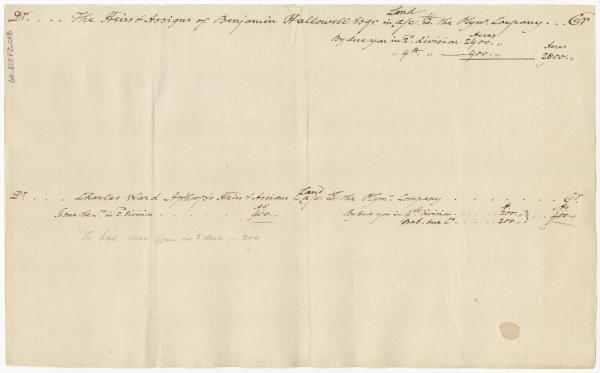 Dr. . . . The Heirs & Assigns of Benjamin Hallowell Esqr in Land a/c wt. the Plymo. Company . . . Cr
Acres
By due you in 2d. division 2400 „ Acres
„ 4th. „ — 400 „ — 2800 „
Dr. . . . Charles Ward Apthorp's Heirs & Assigns Land a/c wt. the Plymo. Company . . . . . . Cr.
To due the Co. in 2 division . . . . . . . . 400 „ By due you in 4th division . . . . 200 „ 400 „
Bal. due Do. . . . . 200 „
To bal. due Com in 2 divn — 200